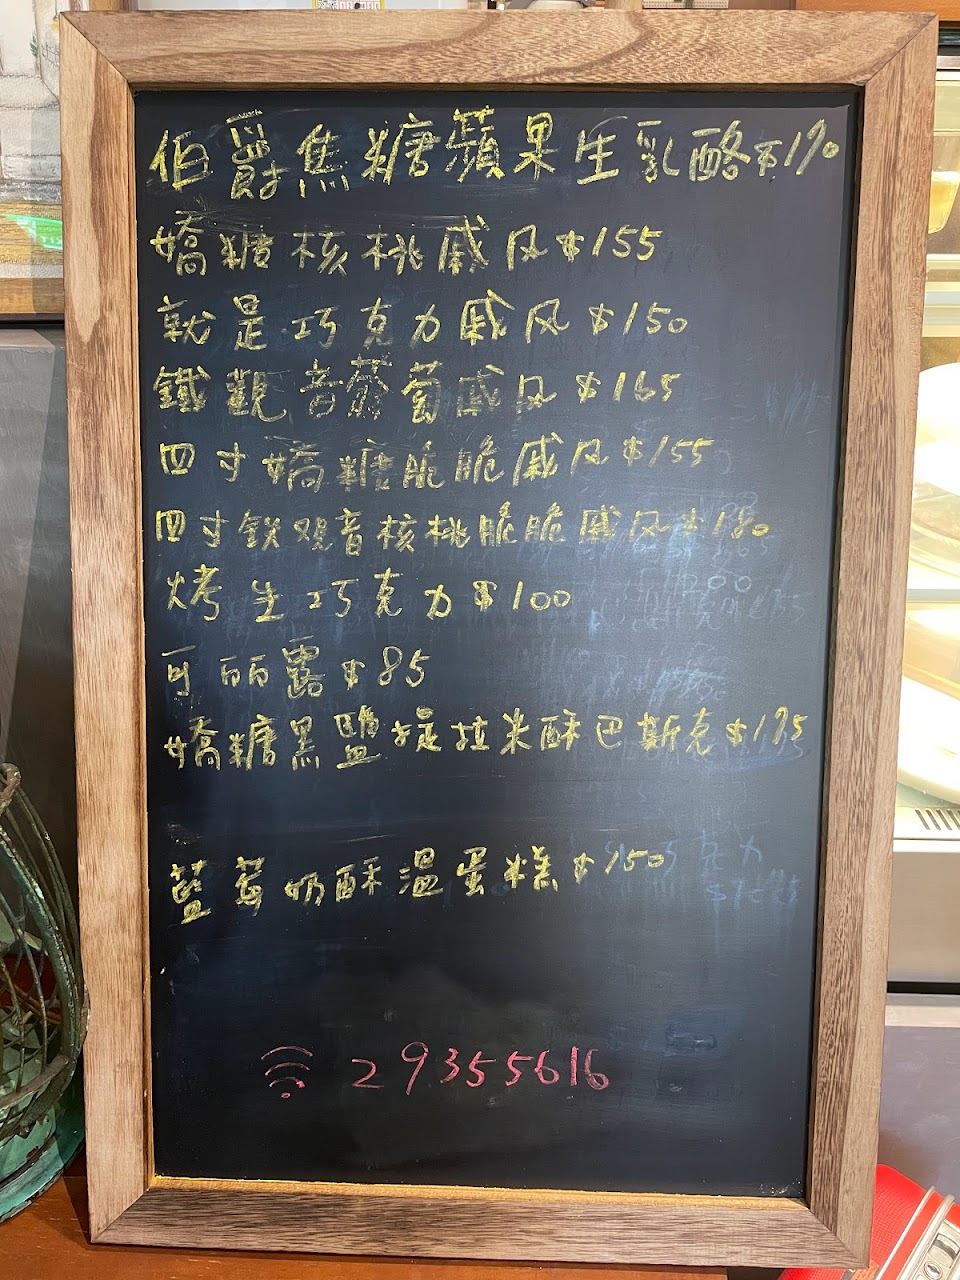 伯爵焦糖蘋果生乳酪$190
嬌糖核桃戚风$155
就是巧克力戚风$150
鐵觀音葡萄戚风$165
四寸嬌糖脆脆戚风$155
四寸鉄观音核桃脆脆戚风$180
烤生巧克力$100
可丽露$85
嬌糖黑鹽提拉米酥巴斯克$175
藍莓奶酥溫蛋糕$150
29355616